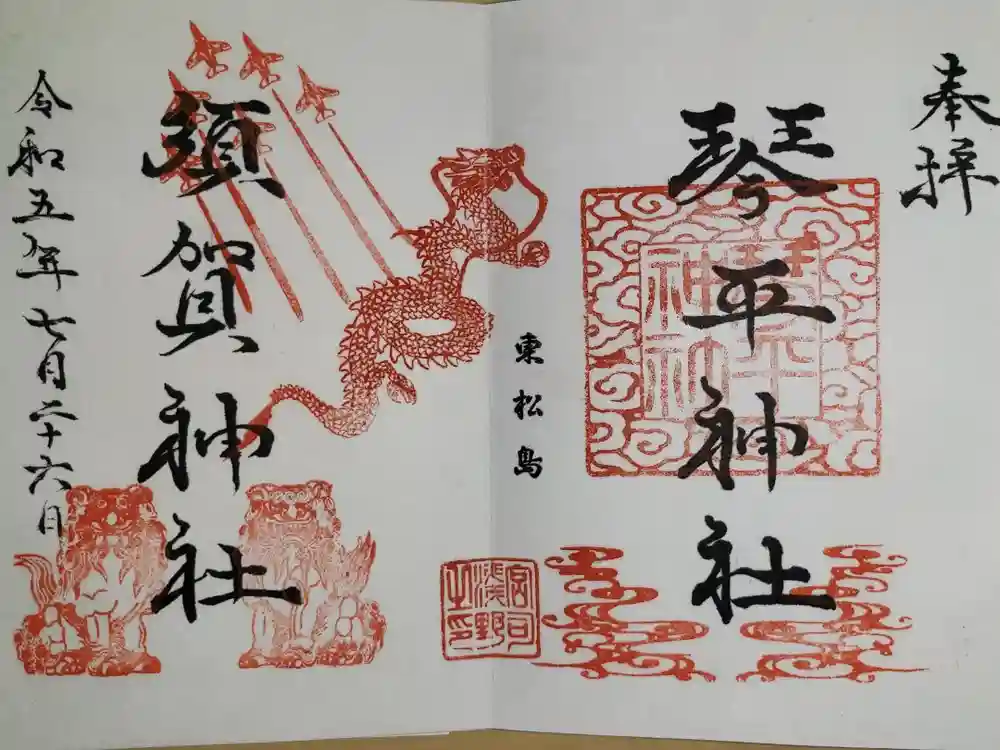 奉拝
琴平神社
琴平神社
東松島
宮司浅野之印
須賀神社
令和五年七月二十六日